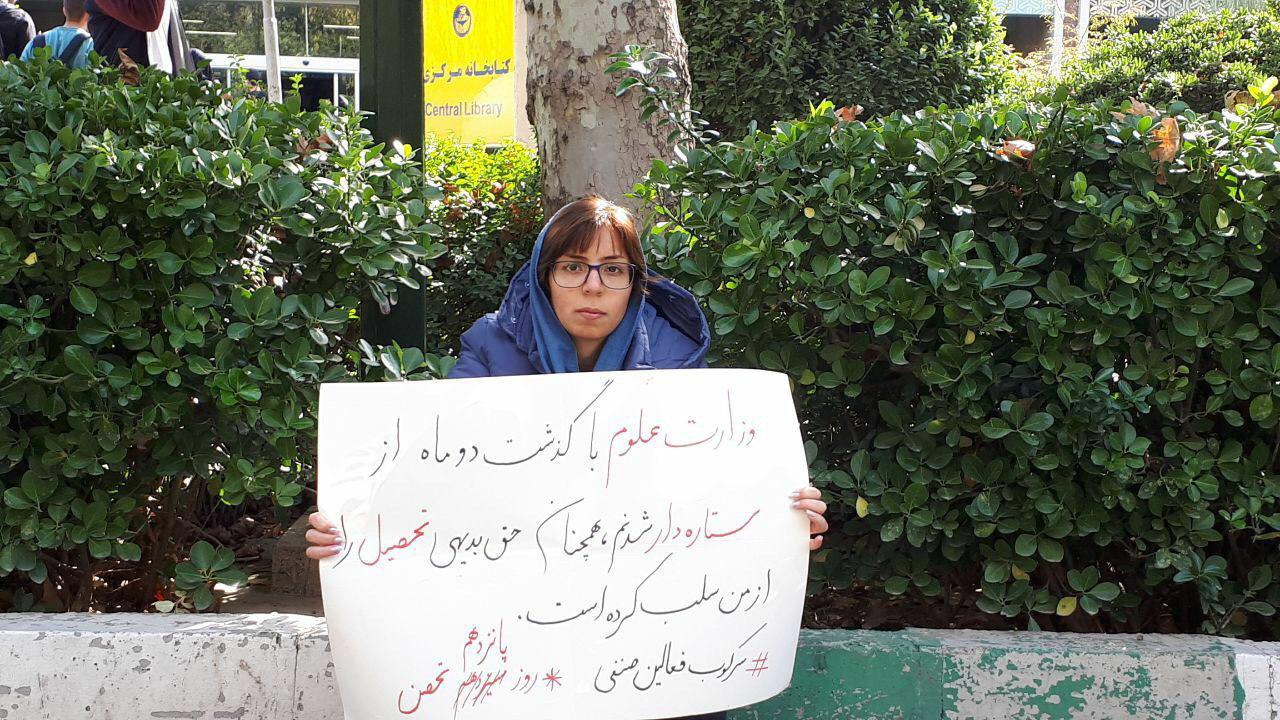 کتابخانه مرکزی
Central Library
وزارت علوم با گذشت دو ماه از
ستاره‌دار شدنم، همچنان حق بدیهی تحصیل را
از من سلب کرده است.
# سرکوب فعالین صنفی * روز پانزدهم تحصن